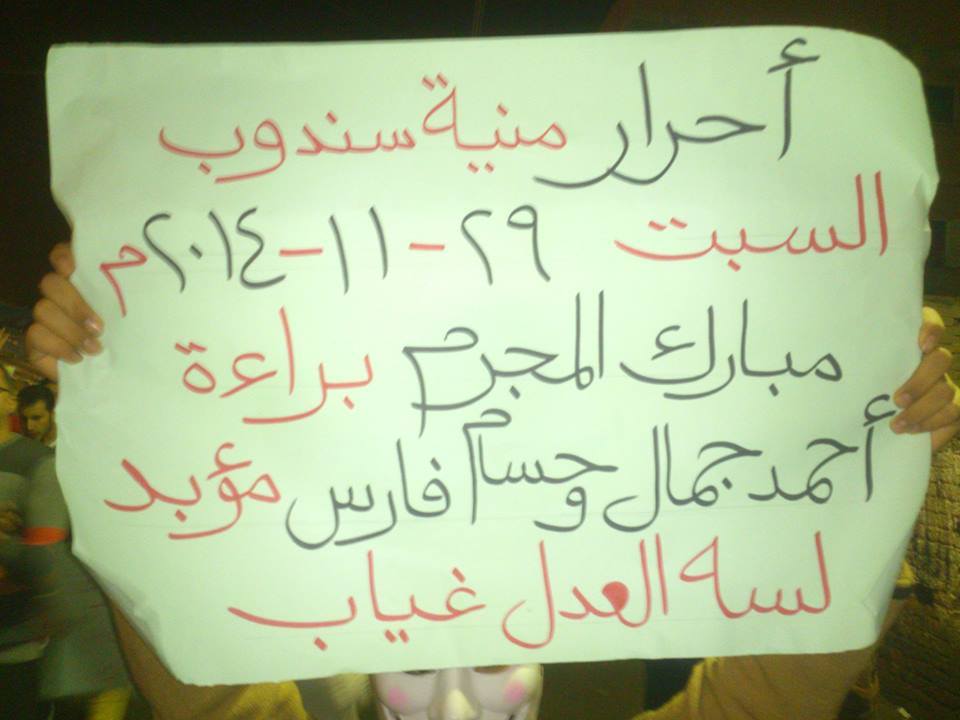 أحرار منية سندوب
السبت ٢٩-١١-٢٠١٤م
مبارك المجرم براءة
أحمد جمال وحسام فارس مؤبد
لسه العدل غياب